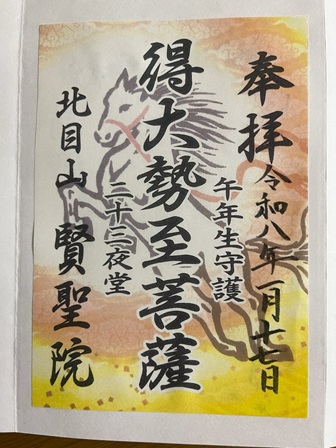 奉拝 令和八年一月十七日
午年生守護
得大勢至菩薩
二十三夜堂
北目山 賢聖院